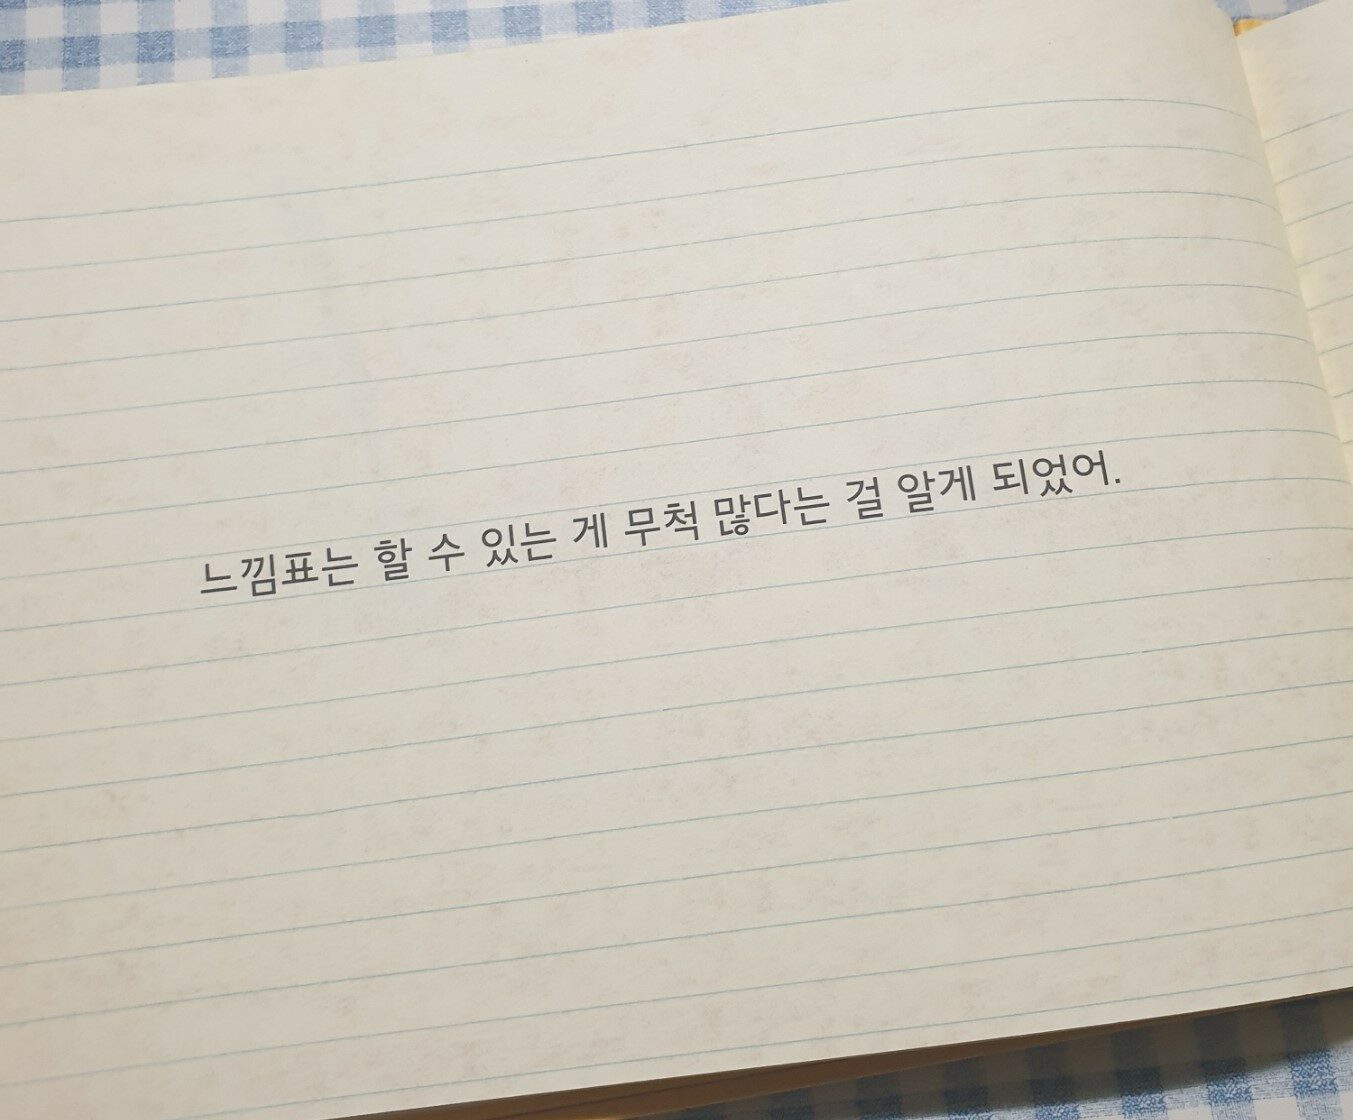 느낌표는 할 수 있는 게 무척 많다는 걸 알게 되었어.